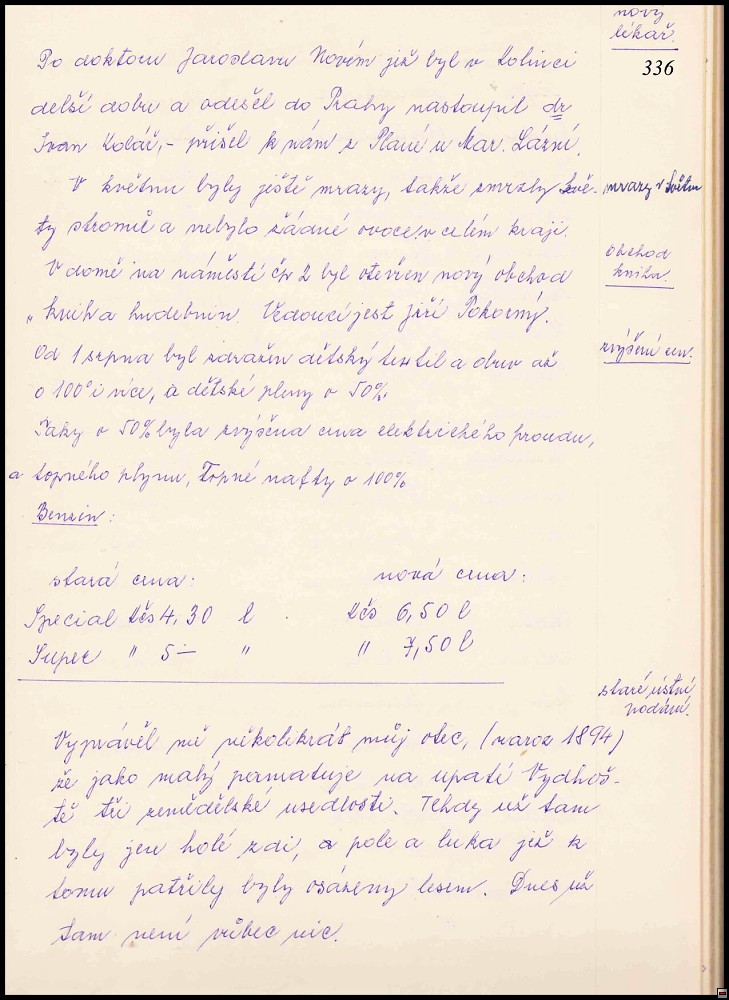 nový
lékař.
336
Po doktoru Jaroslavu Novém jež byl v Kolinci
delší dobu a odešel do Prahy nastoupil dr
Ivan Koláč,- přišel k nám z Plané u Mar. Lázní.
V květnu byly ještě mrazy, takže zmrzly kvě-
mrazy v květnu
ty stromů a nebylo žádné ovoce v celém kraji.
V domě na náměstí čp 2 byl otevřen nový obchod
obchod
kniha.
„kniha hudebnin Vedoucí jest Jiří Pokorný.
Od 1 srpna byl zdražen dětský textil a obuv až
zvýšení cen.
o 100% i více, a dětské pleny o 50%.
Taky o 50% byla zvýšena cena elektrického proudu,
a topného plynu, Topné nafty o 100%
Benzin:
stará cena: nová cena:
Special Kčs 4,30 l Kčs 6,50 l
Super " 5- " " 7,50 l
staré ústní
podání.
Vyprávěl mě několikrát můj otec, (naroz 1894)
že jako malý pamatuje na upatí Vydhoš-
tě tři zemědělské usedlosti. Tehdy už tam
byly jen holé zdi, a pole a luka jež k
tomu patřily byly osázeny lesem. Dnes už
tam není vůbec nic.